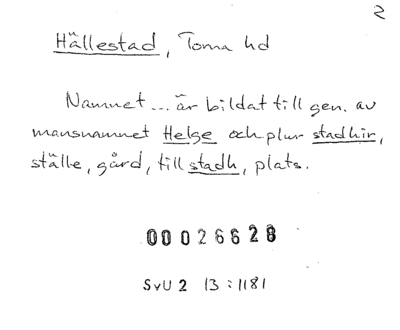 2
Hällestad, Torna hd
Namnet ... är bildat till gen. av
mansnamnet Helge och plur stadhir,
ställe, gård, till stadh, plats.
00026628
SvU 2 13:1181